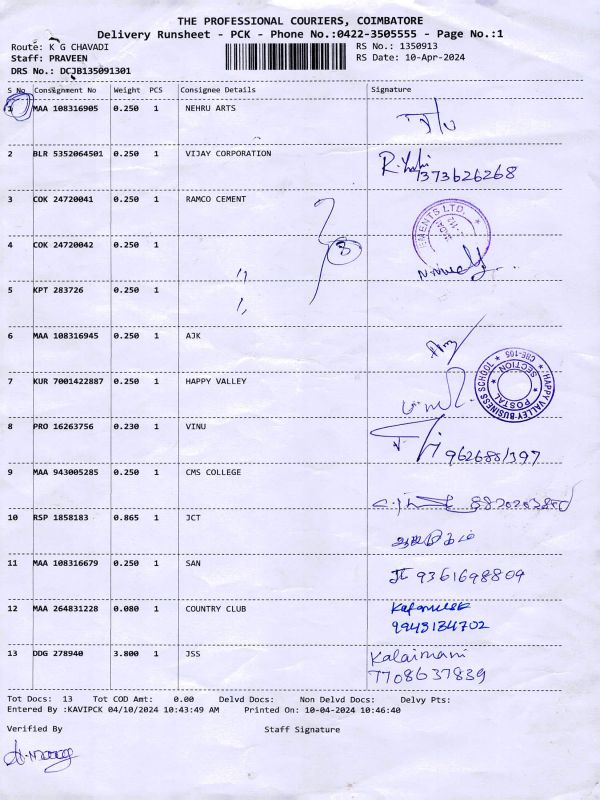 THE PROFESSIONAL COURIERS, COIMBATORE
Delivery Runsheet - PCK - Phone No.:0422-3505555 - Page No.:1
Route: K G CHAVADI RS No.: 1350913
Staff: PRAVEEN RS Date: 10-Apr-2024
DRS No.: DCJB135091301
S No Consignment No Weight PCS Consignee Details Signature
1 MAA 108316905 0.250 1 NEHRU ARTS
2 BLR 5352064501 0.250 1 VIJAY CORPORATION
7373626268
3 COK 24720041 0.250 1 RAMCO CEMENT
EMENTS LTD.
4 COK 24720042 0.250 1 " 3
5 KPT 283726 0.250 1 "
6 MAA 108316945 0.250 1 AJK
7 KUR 7001422887 0.250 1 HAPPY VALLEY
HAPPY VALLEY BUSINESS SCHOOL * CBE-105 *
POSTAL SECTION
8 PRO 16263756 0.230 1 VINU
9626881397
9 MAA 943005285 0.250 1 CMS COLLEGE
10 RSP 1858183 0.865 1 JCT
11 MAA 108316679 0.250 1 SAN
9361698809
12 MAA 264831228 0.080 1 COUNTRY CLUB
9943134702
13 DDG 278940 3.800 1 JSS Kalaimani
7708637839
Tot Docs: 13 Tot COD Amt: 0.00 Delvd Docs: Non Delvd Docs: Delvy Pts:
Entered By :KAVIPCK 04/10/2024 10:43:49 AM Printed On: 10-04-2024 10:46:40
Verified By Staff Signature